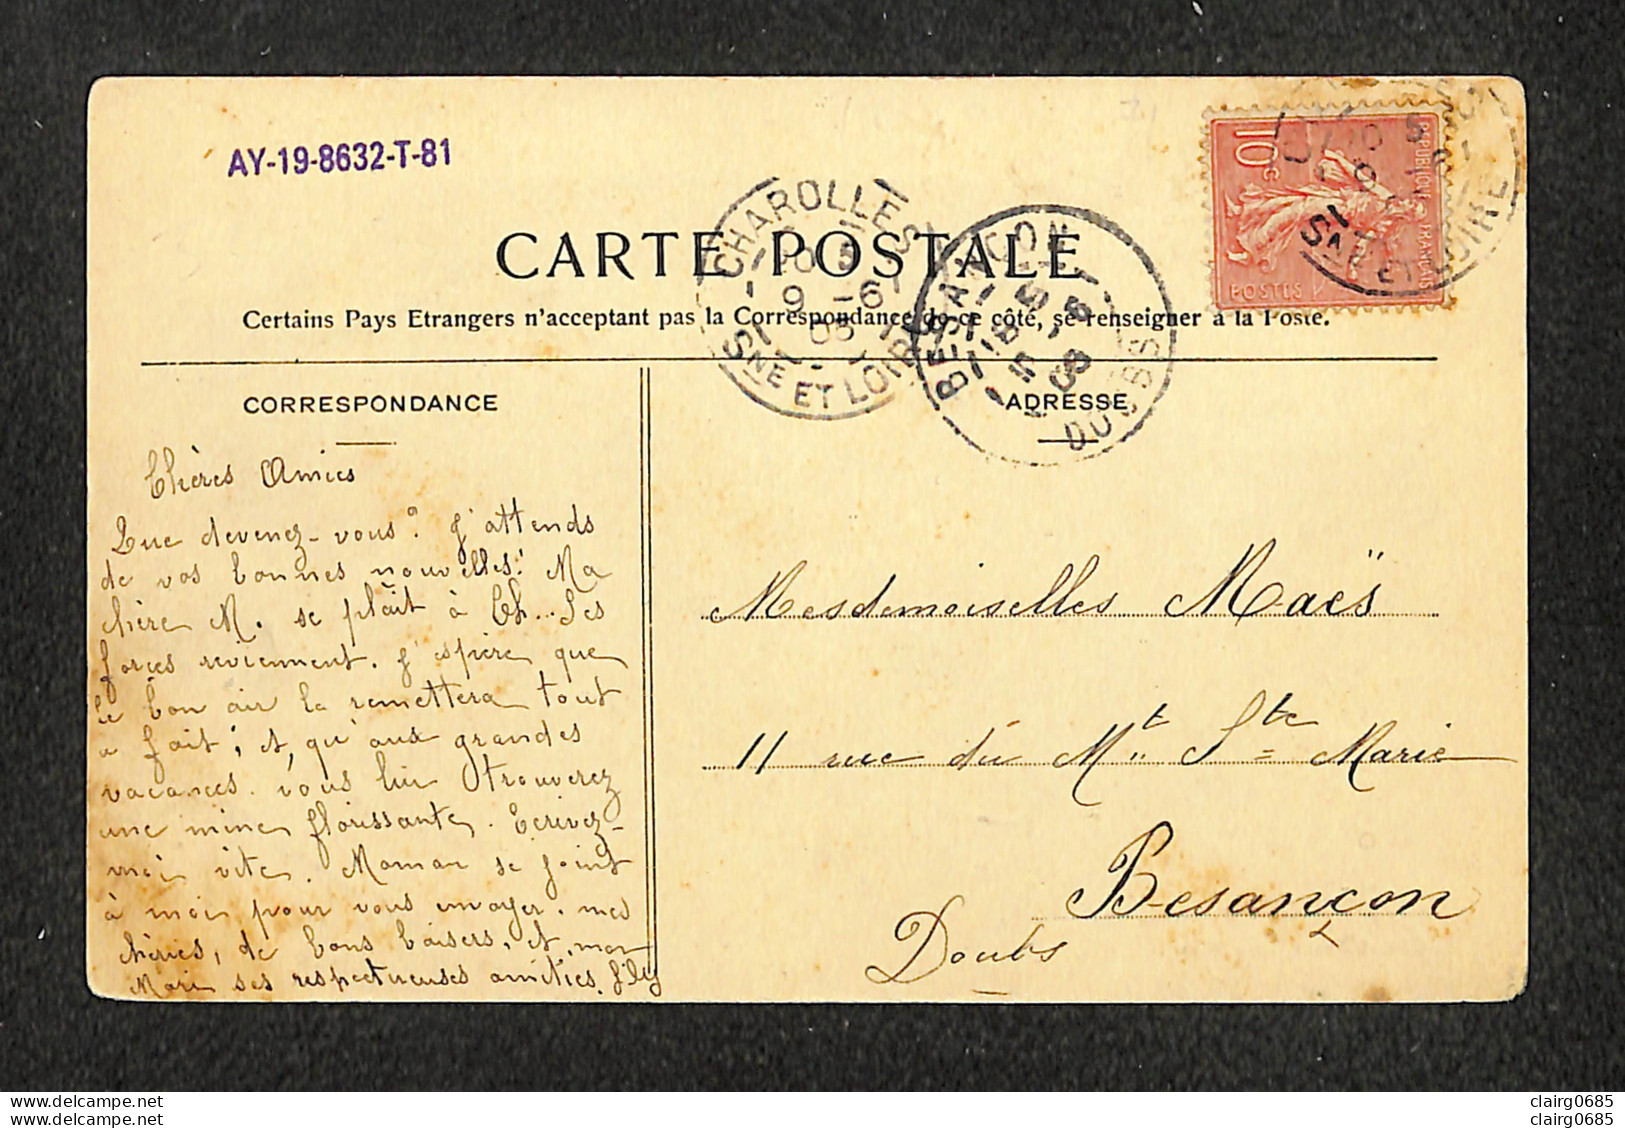 AY-19-8632-T-81
CARTE POSTALE
Certains Pays Etrangers n'acceptant pas la Correspondance de ce côté, se renseigner à la Poste.
CHAROLLES
9 -6
05
SNE ET LOIRE
BESANÇON
DOUBS
10c
REPUBLIQUE FRANÇAISE
POSTES
SNE ET LOIRE
CORRESPONDANCE
ADRESSE
Chères Amies
Que devenez-vous? J'attends
de vos bonnes nouvelles! Ma
chère M. se plaît à Ch... Ses
forces reviennent. J'espère que
le bon air la remettera tout
à fait; et, qu'aux grandes
vacances vous lui trouverez
une mine florissante. Ecrivez-
moi vite. Maman se joint
à moi pour vous envoyer, mes
chéries, de bons baisers, et, mon
Mari ses respectueuses amitiés.
Mesdemoiselles Maës
11 rue du Mt Ste Marie
Besançon
Doubs
delcampe.net
delcampe.net
clairg0685
clairg0685